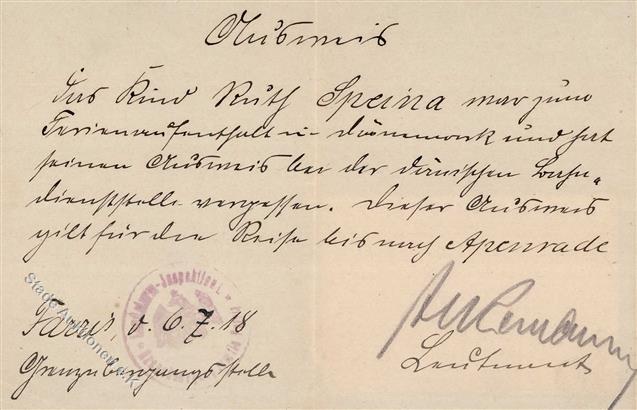 Ausweis
Das Kind Ruth Speina war zum
Ferienaufenthalt in Dänemark und hat
seinen Ausweis bei der dänischen Bahn„
dienststelle vergessen. Dieser Ausweis
gilt für die Reise bis nach Apenrade
Farris d. 6.7.18
Grenzübergangsstelle
Leutnant
Stade Auktionen e.K.